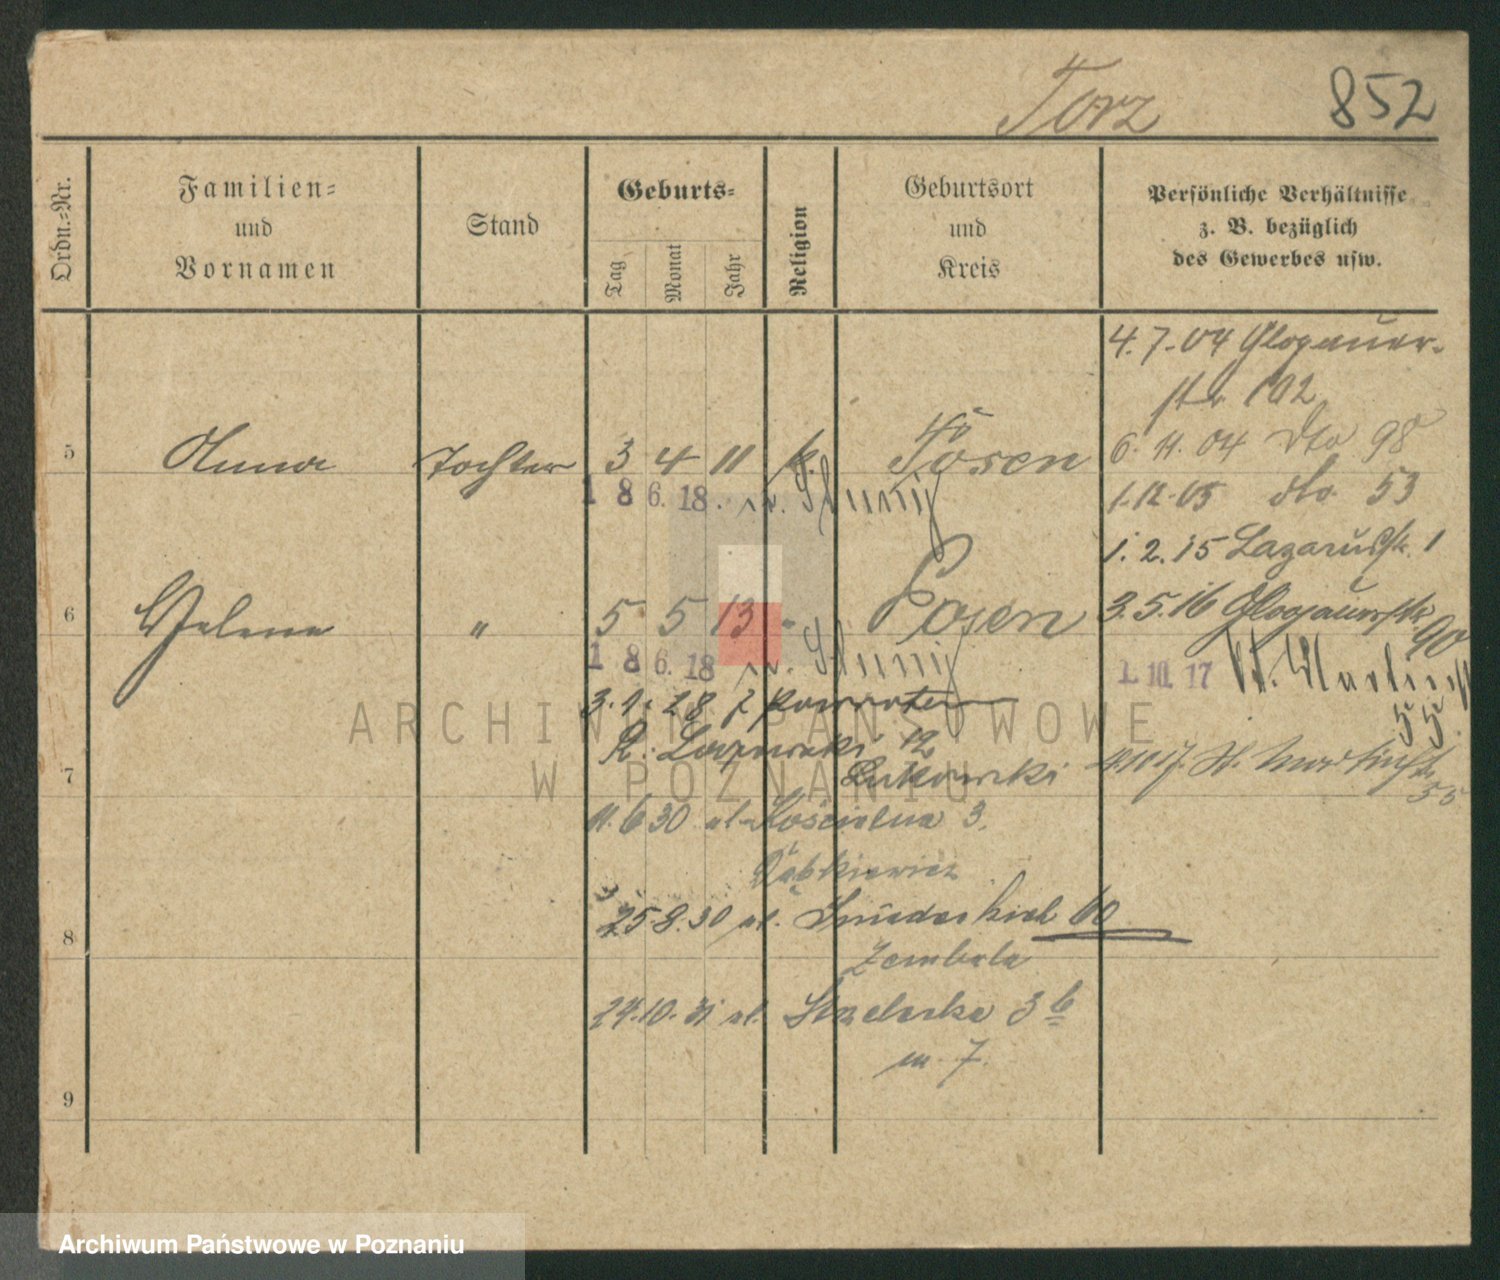 Torz 852
Ordn.-Nr.
Familien-
und
Vornamen
Stand
Geburts-
Tag
Monat
Jahr
Religion
Geburtsort
und
Kreis
Persönliche Verhältnisse
z. B. bezüglich
des Gewerbes usw.
4.7.04 Glogauer-
str 102
5 Anna Tochter 3 4 11 k. Posen
6.11.04 dto 98
18 6. 18.
1.12.05 dto 53
1.2.15 Lazarusstr. 1
6 Helene " 5 5 13 " Posen
3.5.16 Glogauerstr 90
18 6. 18
1. 10. 17 St. Martinstr
55.
3.1.28 z powrotem
12
7
4.10.17. St. Martinstr
55
11.6.30 ul. Kościelna 3.
Dąbkiewicz
8 25.8.30 ul. Śniadeckich 60
Zembala
24.10.31 ul. Strzelecka 3 b
m. 7.
9
ARCHIWUM PAŃSTWOWE
W POZNANIU
Archiwum Państwowe w Poznaniu